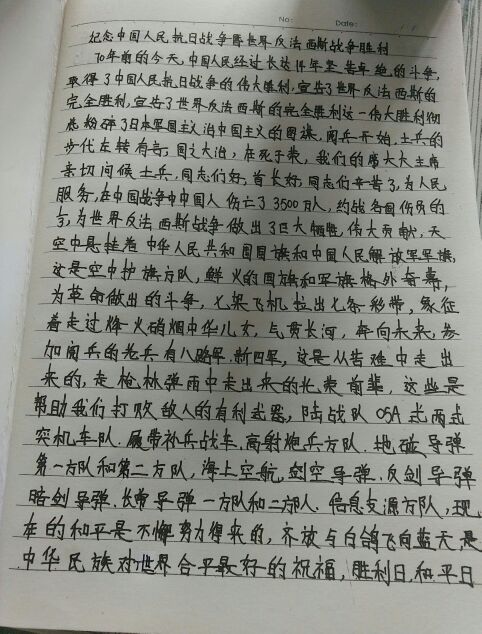 No: Date:
纪念中国人民抗日战争暨世界反法西斯战争胜利
70年前的今天,中国人民经过长达14年坚苦卓绝的斗争,
取得了中国人民抗日战争的伟大胜利,宣告了世界反法西斯的
完全胜利,宣告了世界反法西斯的完全胜利这一伟大胜利彻
底粉碎了日本军国主义治中国主义的图谋,阅兵开始,士兵的
步代左转有言,国之大治,在死于荣,我们的席大大主席
亲切问候士兵,同志们好,首长好,同志们辛苦了,为人民
服务,在中国战争中中国人伤亡了3500万人,约战各国伤员的
为世界反法西斯战争做出了巨大牺牲,伟大贡献,天
空中悬挂着中华人民共和国国旗和中国人民解放军军旗,
这是空中护旗方队,鲜火的国旗和军旗格外夺幕,
为革命做出的斗争,七架飞机拉出七条彩带,象征
着走过烽火硝烟中华儿女,气贯长河,奔向未来,参
加阅兵的老兵有八路军新四军,这是从苦难中走出
来的,走枪林弹雨中走出来的光荣前辈,这些是
帮助我们打败敌人的有利武器,陆战队05A式两式
突机车队.履带补兵战车.高射炮兵方队.地磁导弹
第一方队和第二方队,海上空航,剑空导弹.反剑导弹
暗剑导弹.长常导弹一方队和二方队.信息支源方队,现
在的和平是不懈努力得来的,齐放与白鸽飞向蓝天,是
中华民族对世界合平最好的祝福,胜利日,和平日